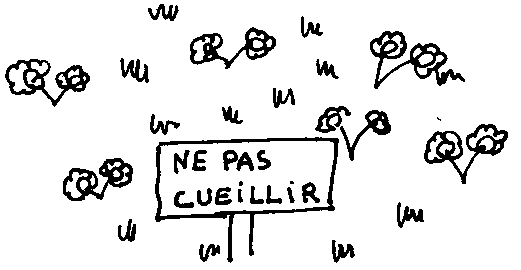 NE PAS
CUEiLLiR